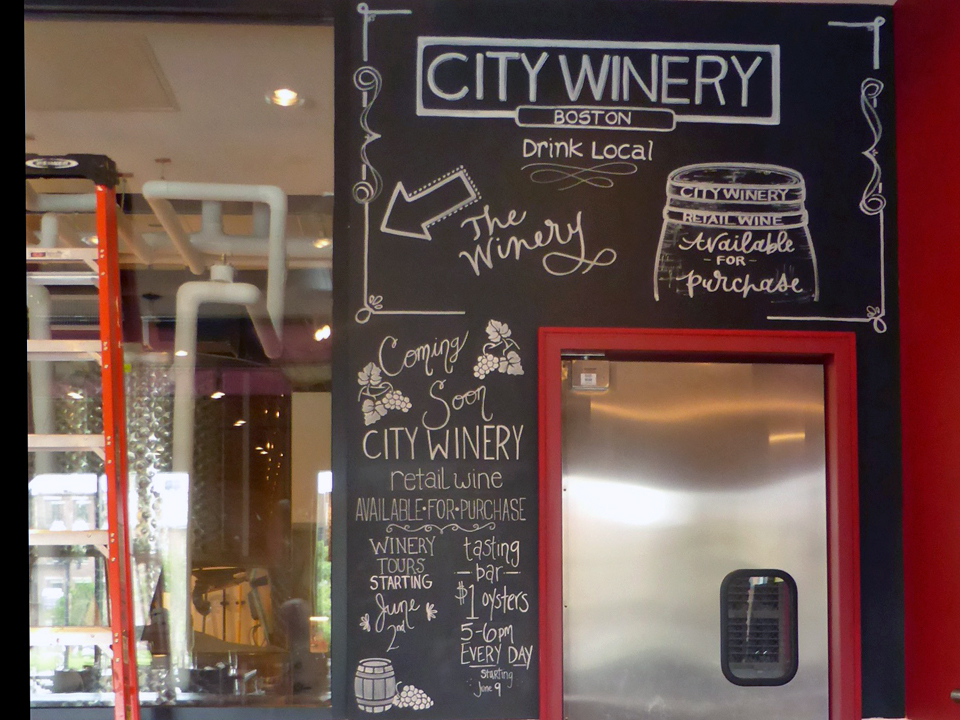 CITY WINERY
BOSTON
Drink Local
The
Winery
CITY WINERY
RETAIL WINE
Available
- FOR -
Purchase
Coming
Soon
CITY WINERY
retail wine
AVAILABLE·FOR·PURCHASE
WINERY
TOURS
STARTING
June
2nd
tasting
- bar -
$1 oysters
5-6pm
EVERY DAY
Starting
June 9